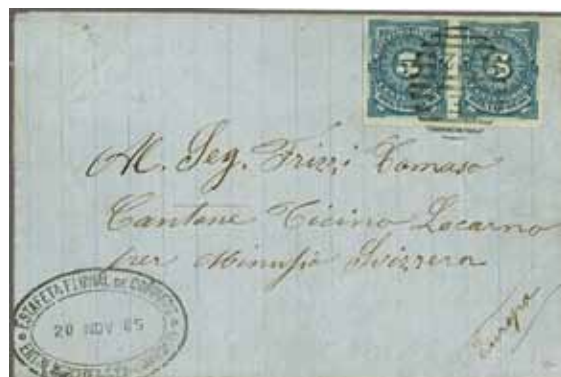 5 5
Al. Seg. Frizzi Tomaso
Cantone Ticino Locarno
per Minusio Svizzera
ESTAFETA FLUVIAL DE CORREOS
20 NOV 85
Europa